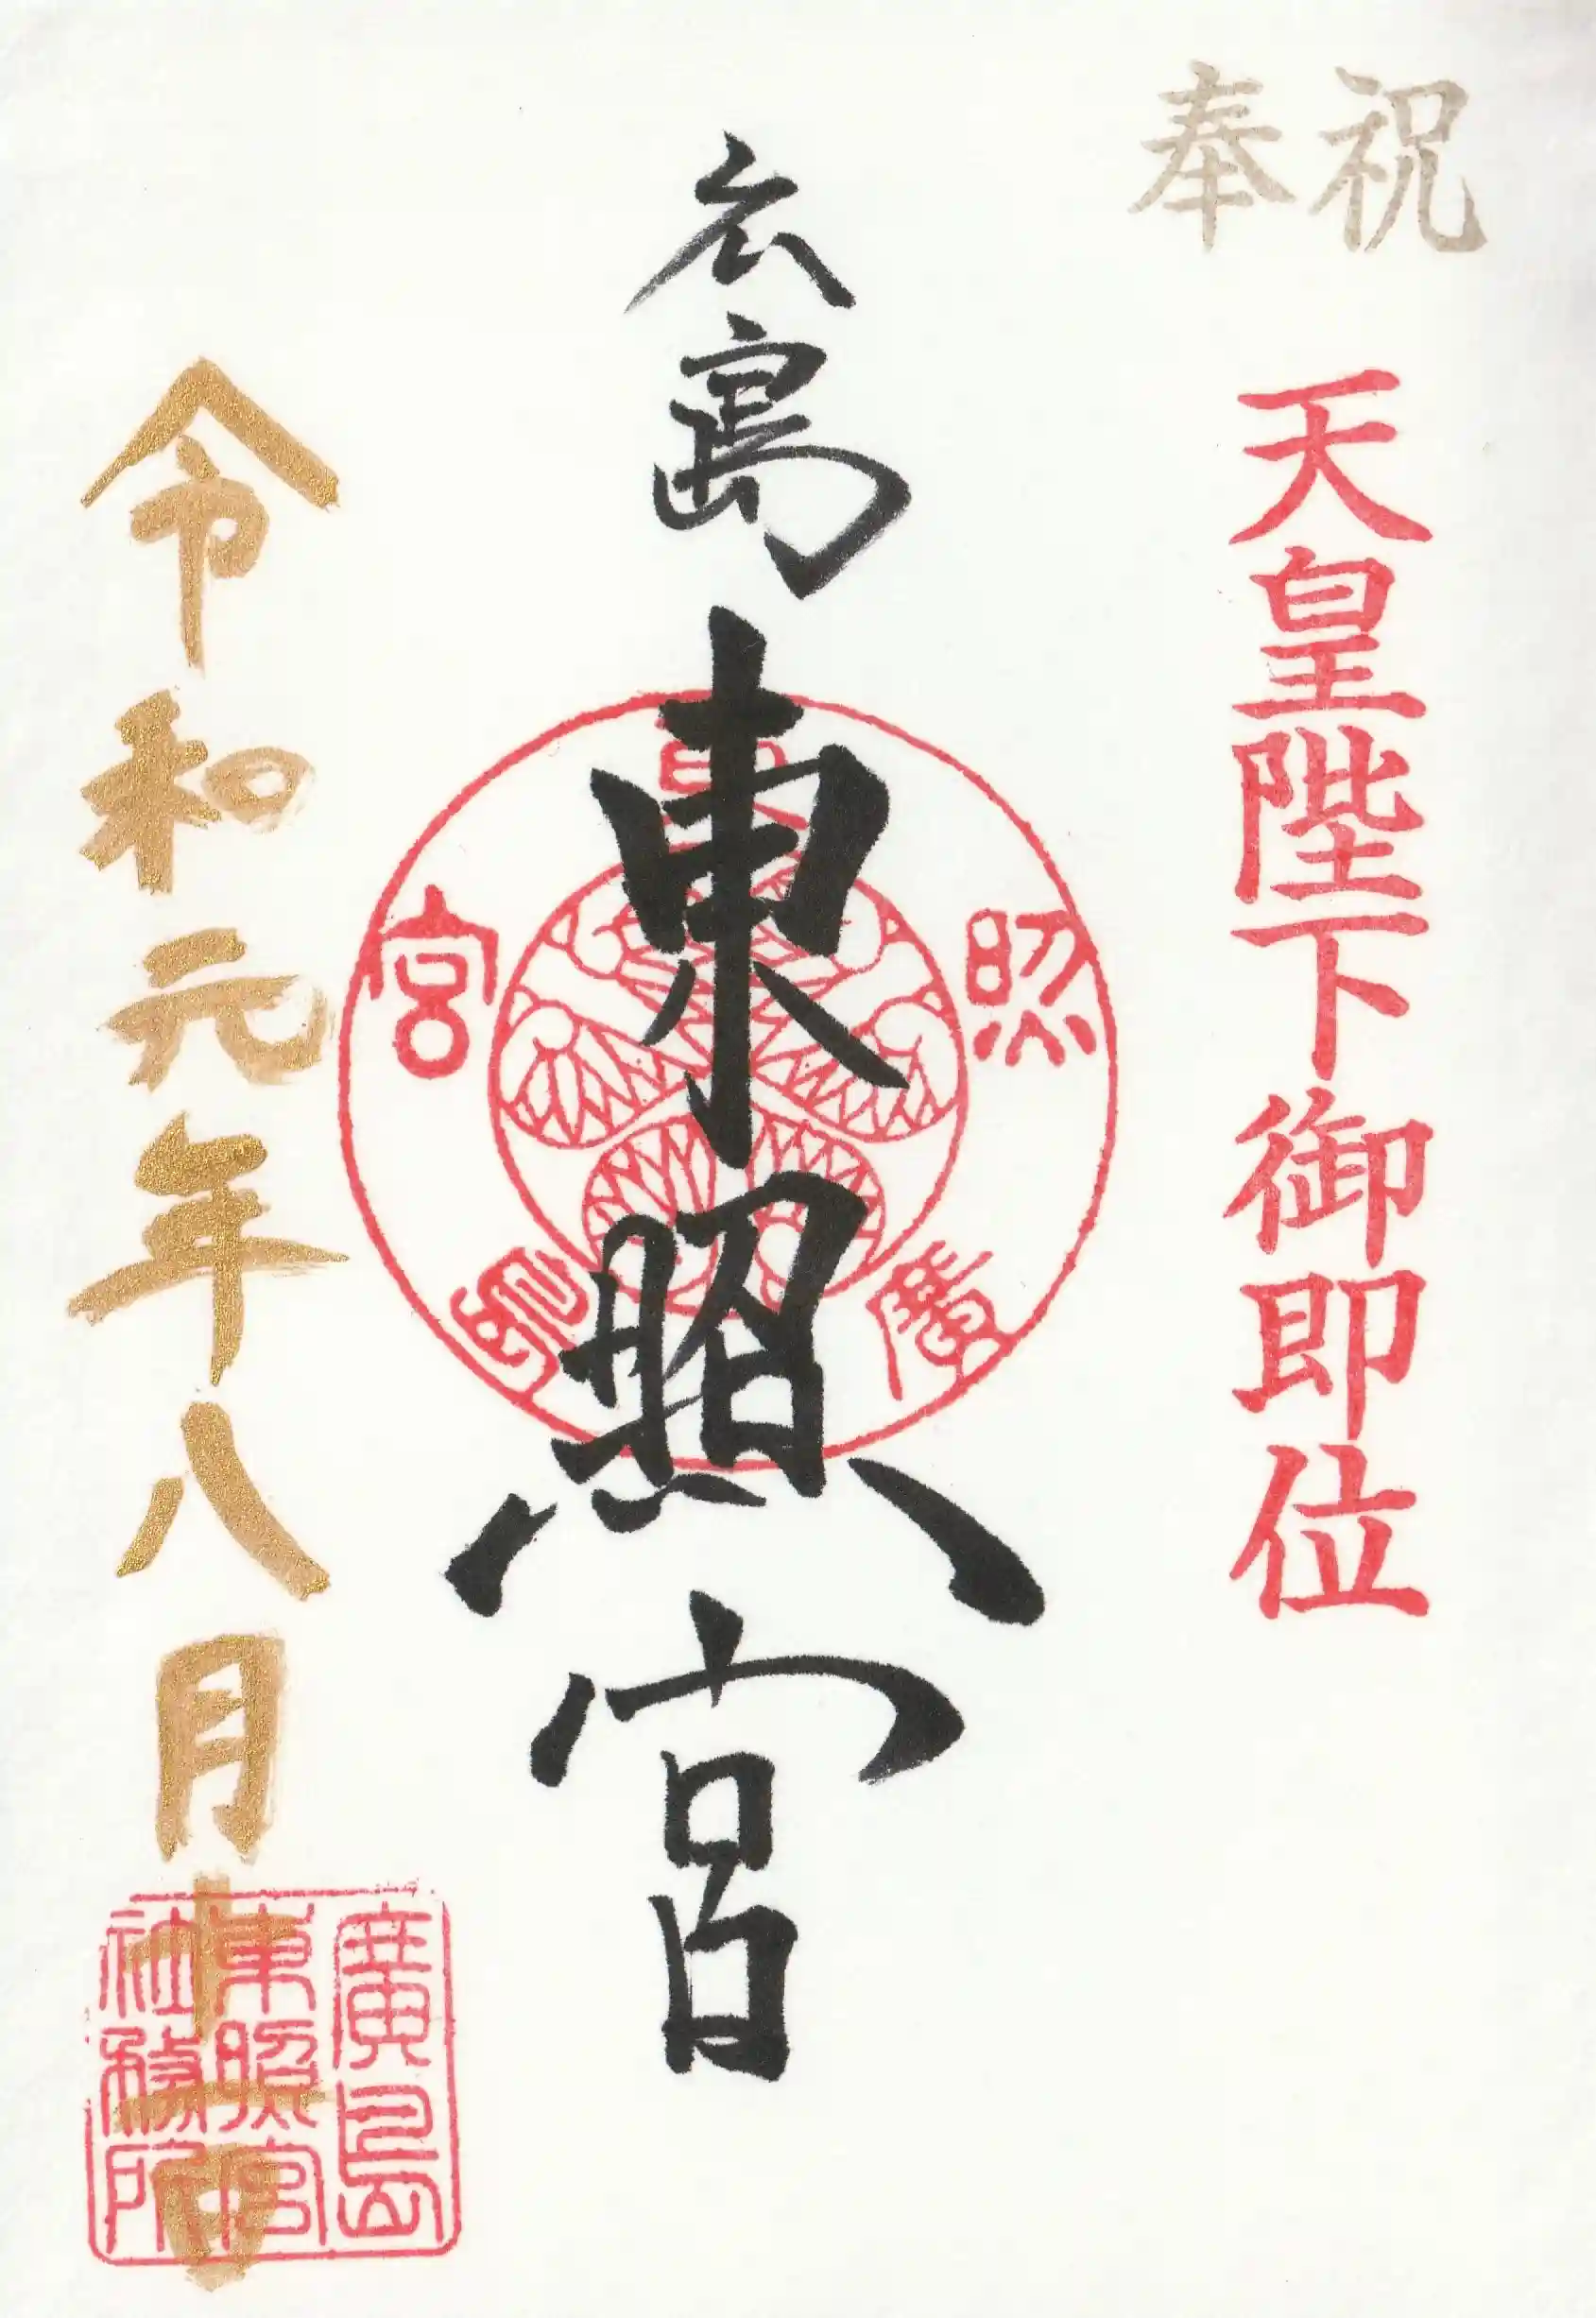 奉祝
天皇陛下御即位
広島東照宮
廣島東照宮
令和元年八月十一日
廣島
東照宮
社務所